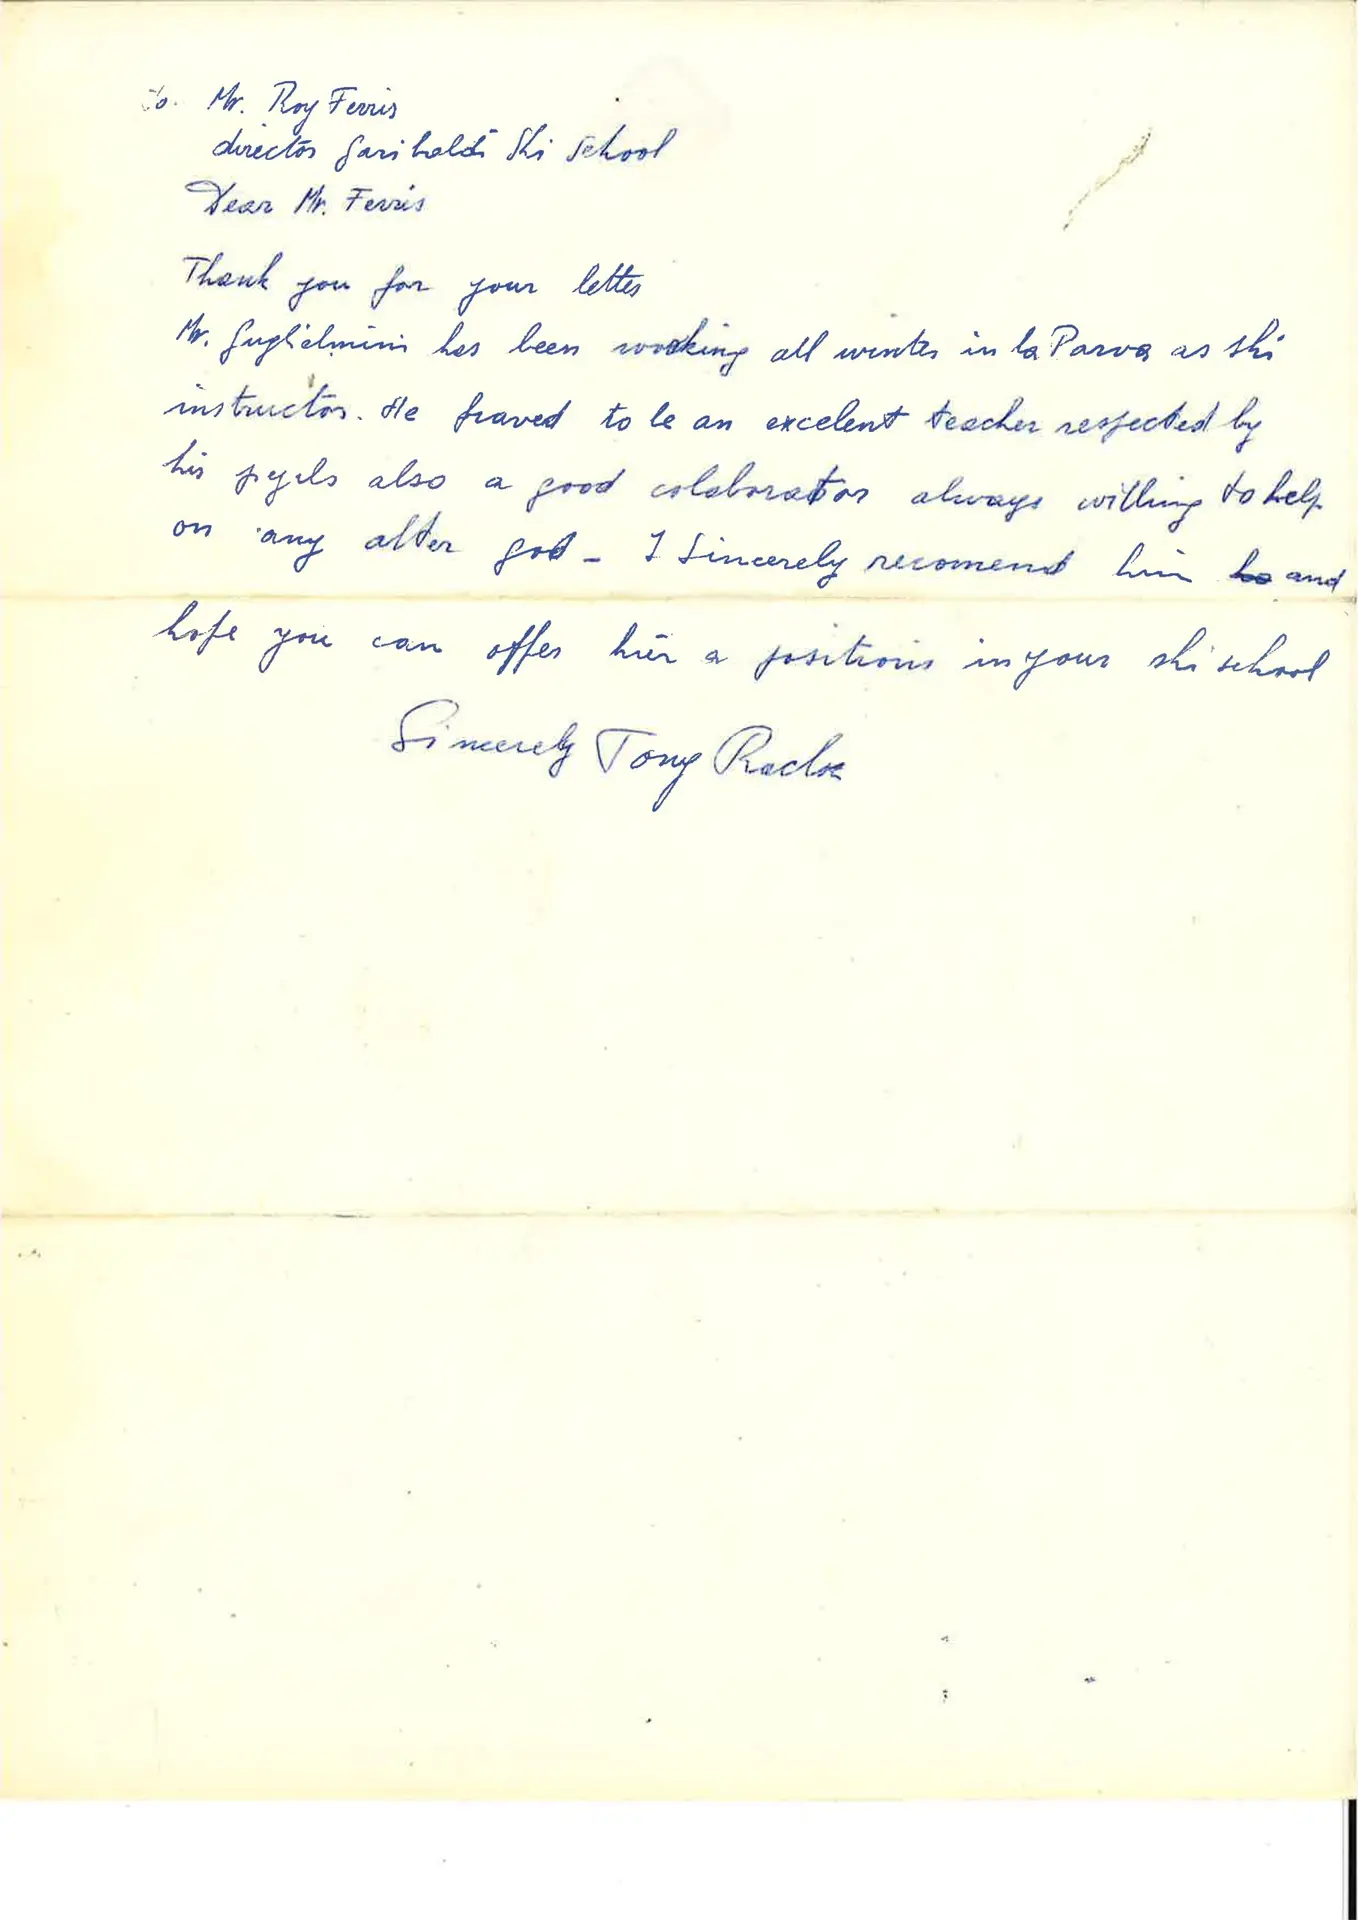 To. Mr. Roy Ferris
director Garibaldi Ski School
Dear Mr. Ferris
Thank you for your letter
Mr. Guglielmini has been working all winter in la Parva as ski
instructor. He praved to be an excelent teacher respected by
his pupils also a good colaborator always willing to help
on any alter - I Sincerely recomend him and
hope you can offer him a position in your ski school
Sincerely Tony